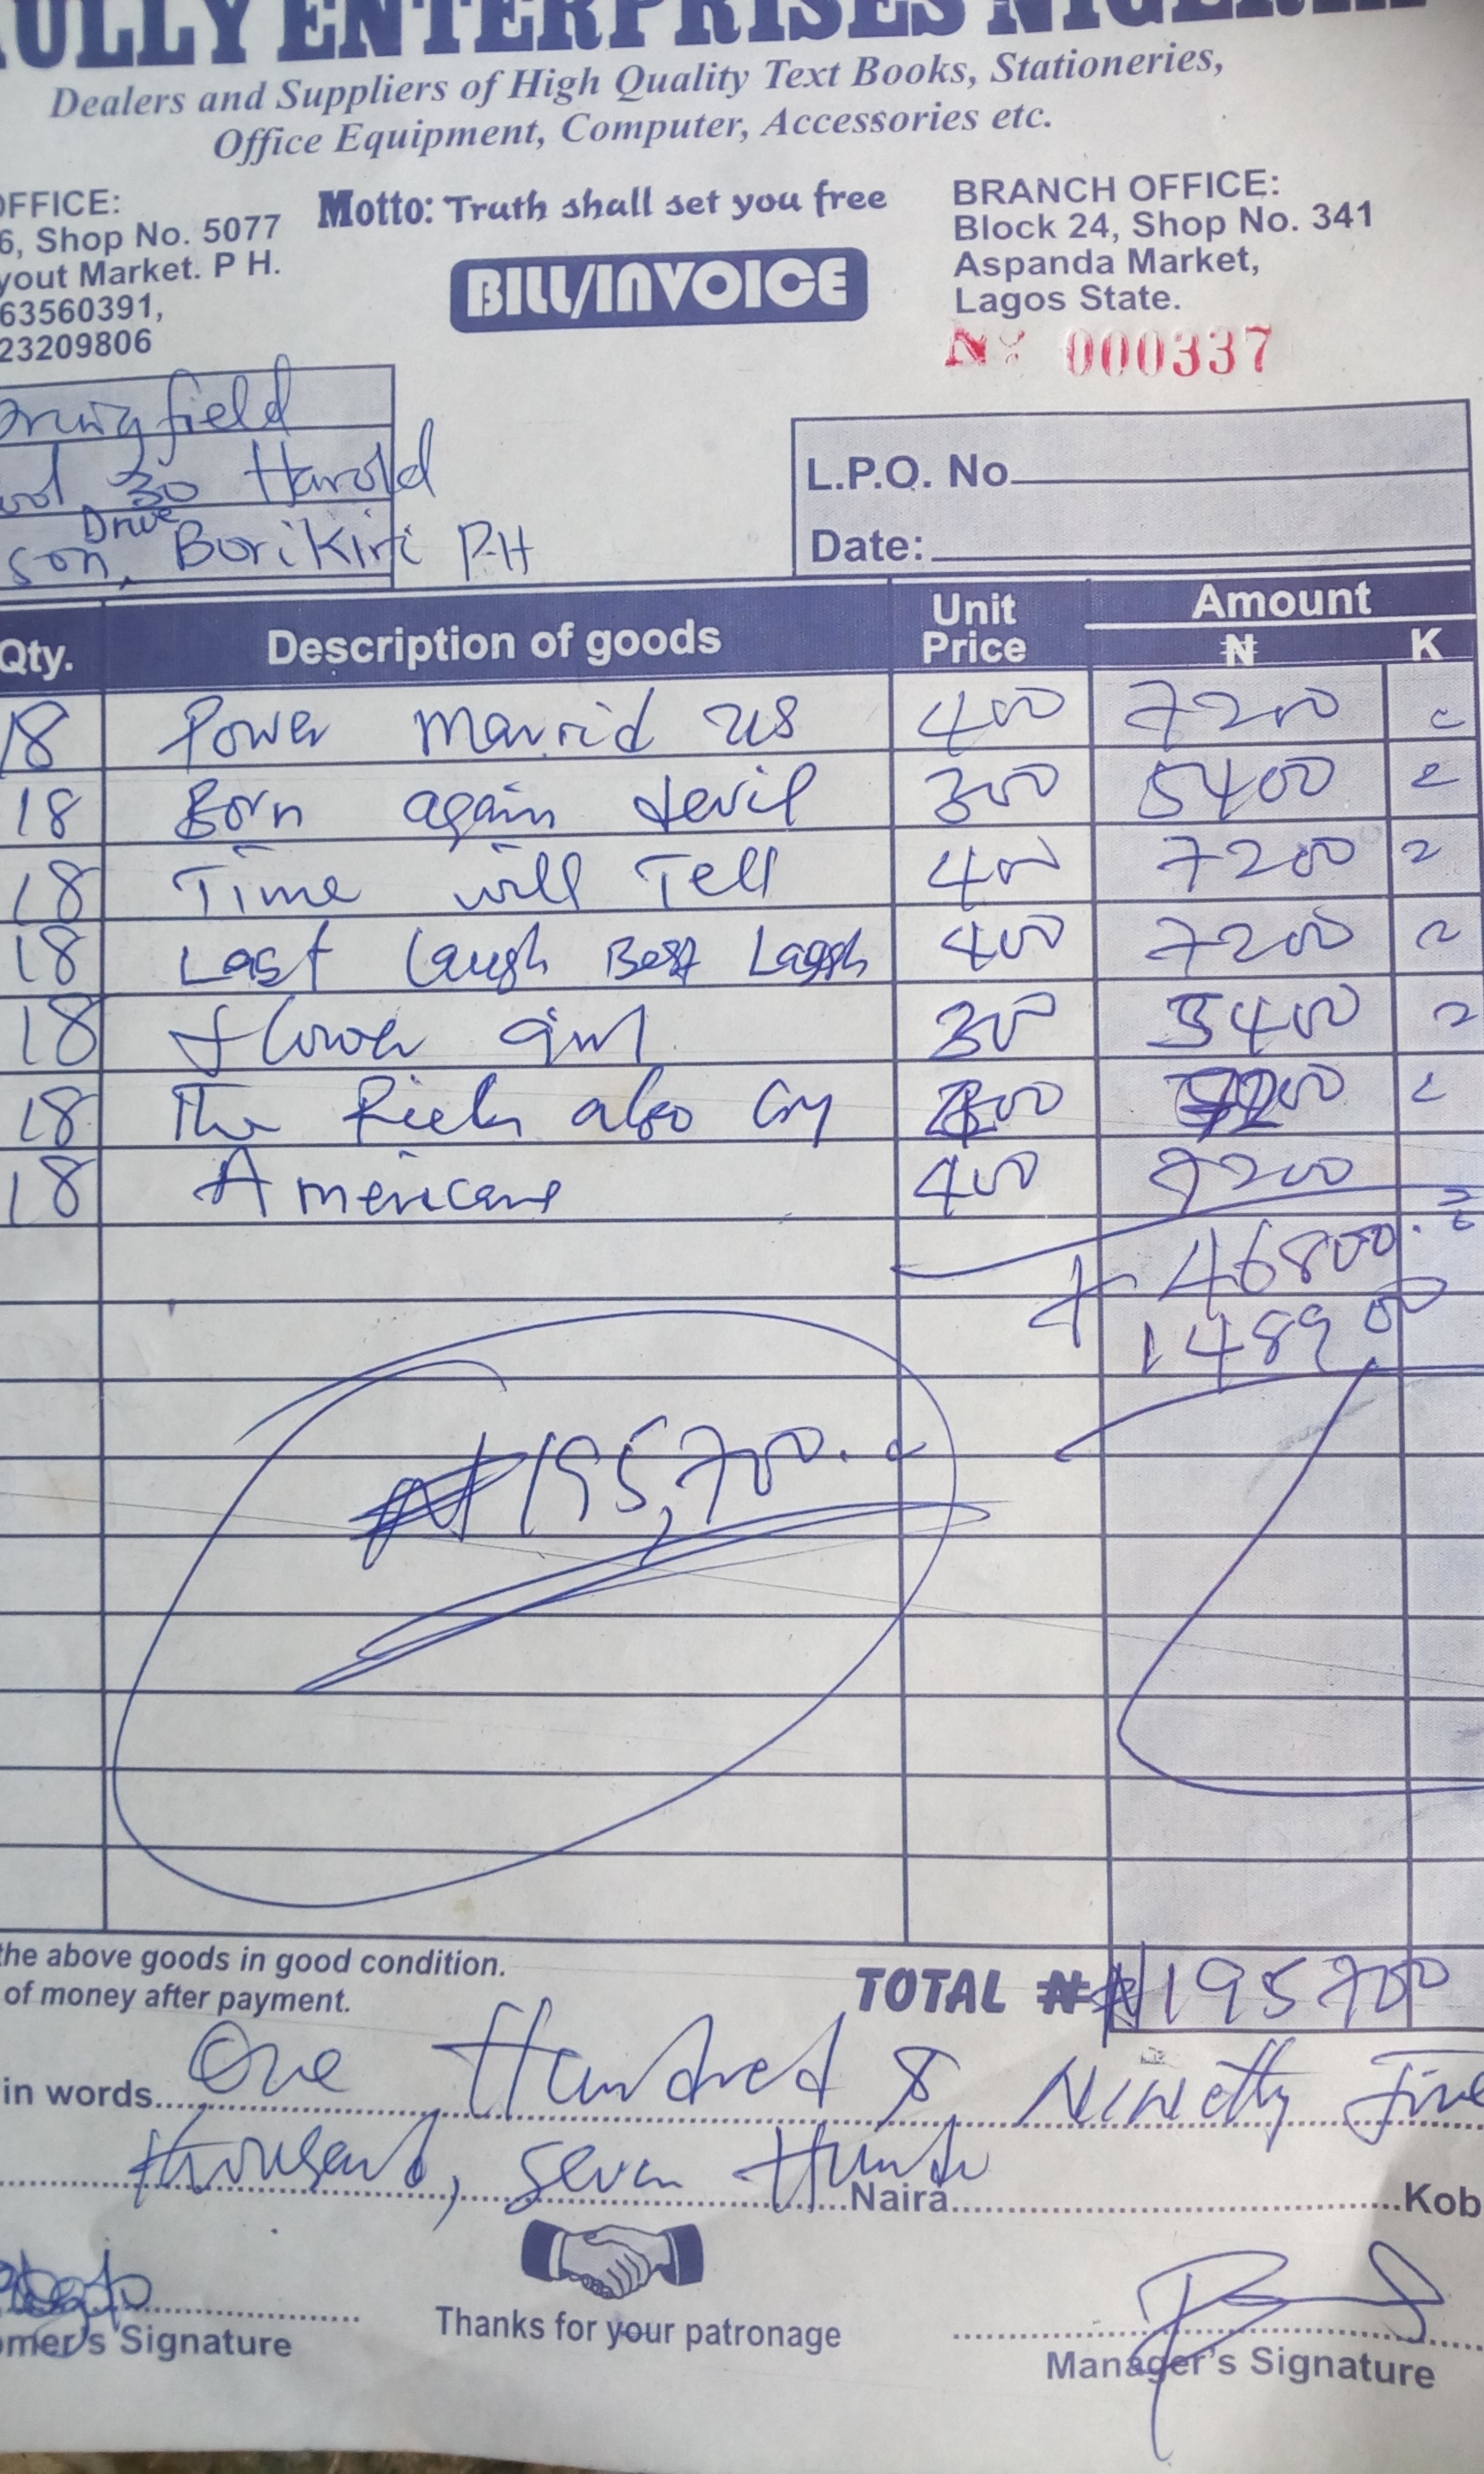 ULLY ENTERPRISES NIGERIA
Dealers and Suppliers of High Quality Text Books, Stationeries,
Office Equipment, Computer, Accessories etc.
OFFICE:
6, Shop No. 5077
yout Market. P H.
63560391,
23209806
Motto: Truth shall set you free
BILL/INVOICE
BRANCH OFFICE:
Block 24, Shop No. 341
Aspanda Market,
Lagos State.
No 000337
ringfield
ool 30 Harold
Drive
son, Borikiri P-H
L.P.O. No
Date:
Qty. Description of goods Unit Price Amount ₦ K
18 Power Marrid us 400 7200 =
18 Born again devil 300 5400 =
18 Time will Tell 400 7200 =
18 Last laugh Best Laugh 400 7200 =
18 flower girl 300 5400 =
18 The Rich also Cry 400 7200 =
18 Americana 400 7200 =
+ 46800. =
148900
₦195,700. =
the above goods in good condition.
of money after payment.
TOTAL ₦ ₦195700
in words One Hundred & Ninetty Five
thousand, Seven Hund Naira Kob
omer's Signature
Thanks for your patronage
Manager's Signature